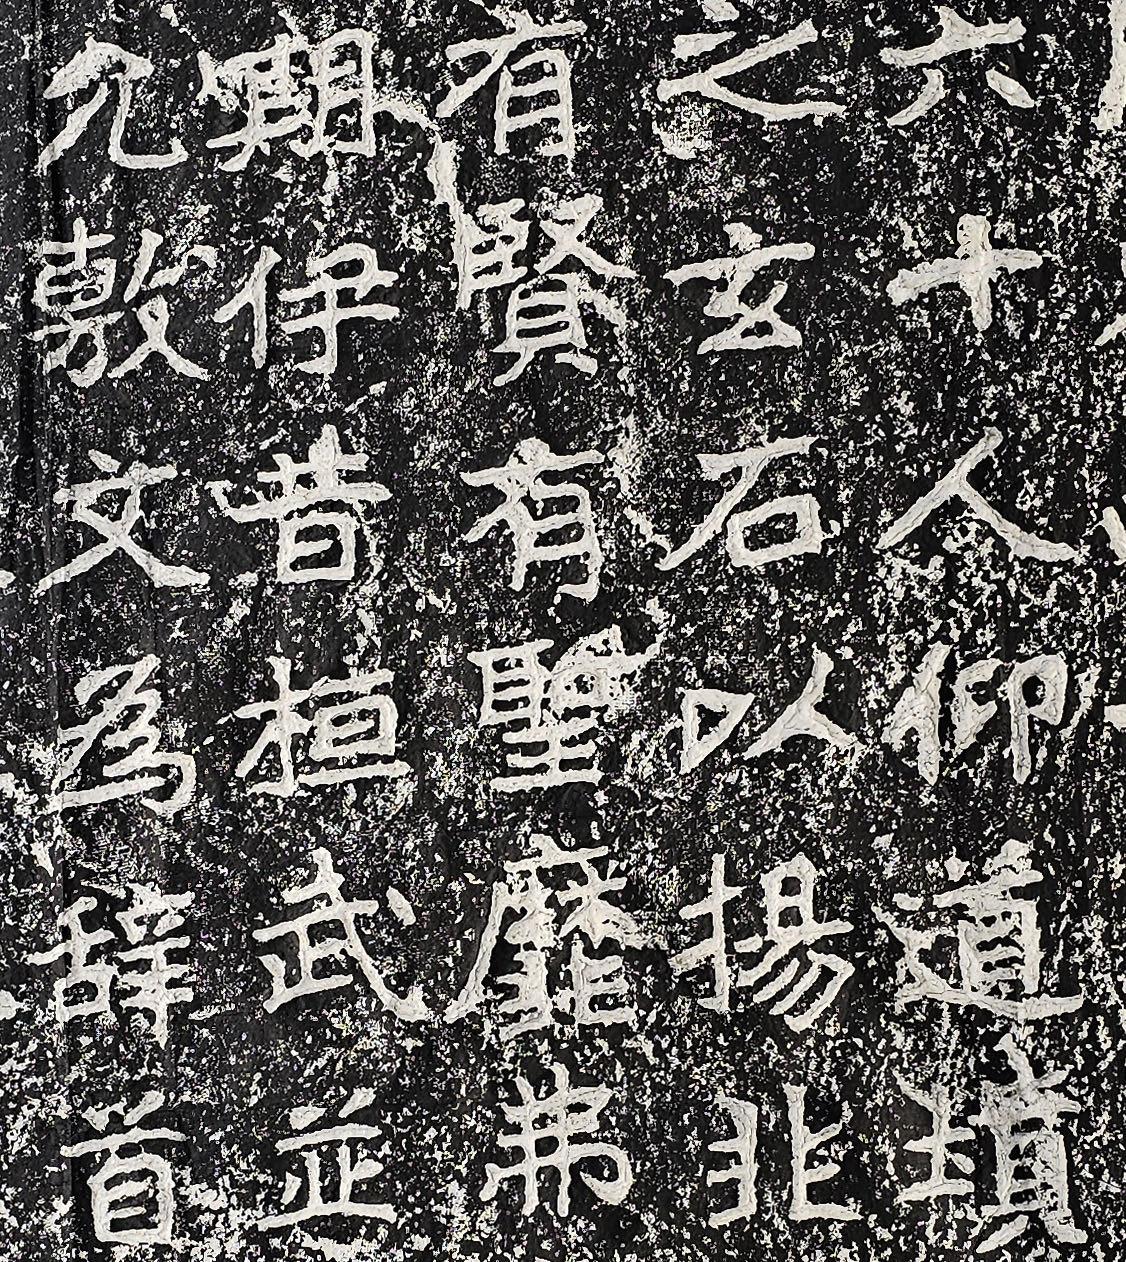 六十人仰道墳
之玄石以揚非
有賢有聖靡弗
期伊昔桓武並
允敷文為辭首